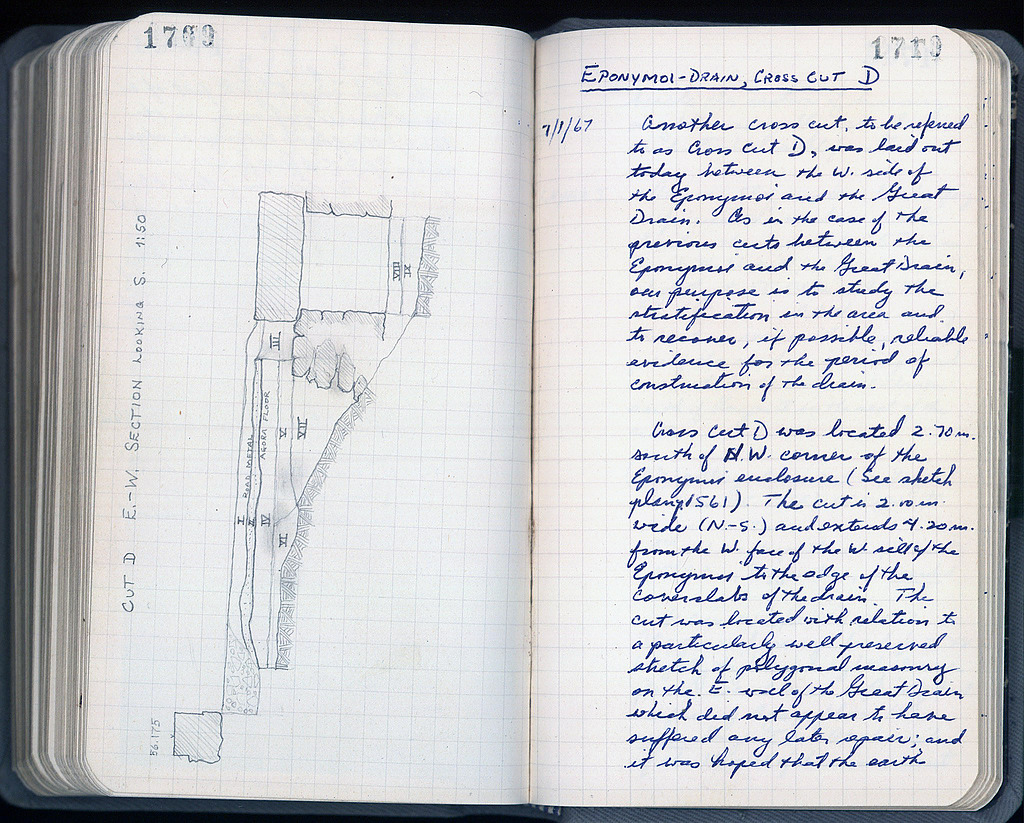 1709
CUT D E.-W. SECTION LOOKING S. 1:50
VIII
IX
III
ROAD METAL
AGORA FLOOR
V
VIII
I
II
IV
VI
56.175
1710
EPONYMOI-DRAIN, CROSS CUT D
7/1/67
Another cross cut, to be referred
to as Cross Cut D, was laid out
today between the W. side of
the Eponymoi and the Great
Drain. As in the case of the
previous cuts between the
Eponymoi and the Great Drain,
our purpose is to study the
stratification in the area and
to recover, if possible, reliable
evidence for the period of
construction of the drain.
Cross Cut D was located 2.70 m.
south of N.W. corner of the
Eponymoi enclosure (See sketch
plan p. 1561). The cut is 2.00 m.
wide (N.-S.) and extends 4.20 m.
from the W. face of the W. sill of the
Eponymoi to the edge of the
coverslabs of the drain. The
cut was located with relation to
a particularly well preserved
stretch of polygonal masonry
on the E. wall of the Great Drain
which did not appear to have
suffered any later repair; and
it was hoped that the earth